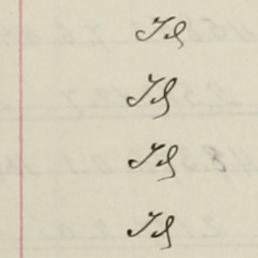 Id
Id
Id
Id